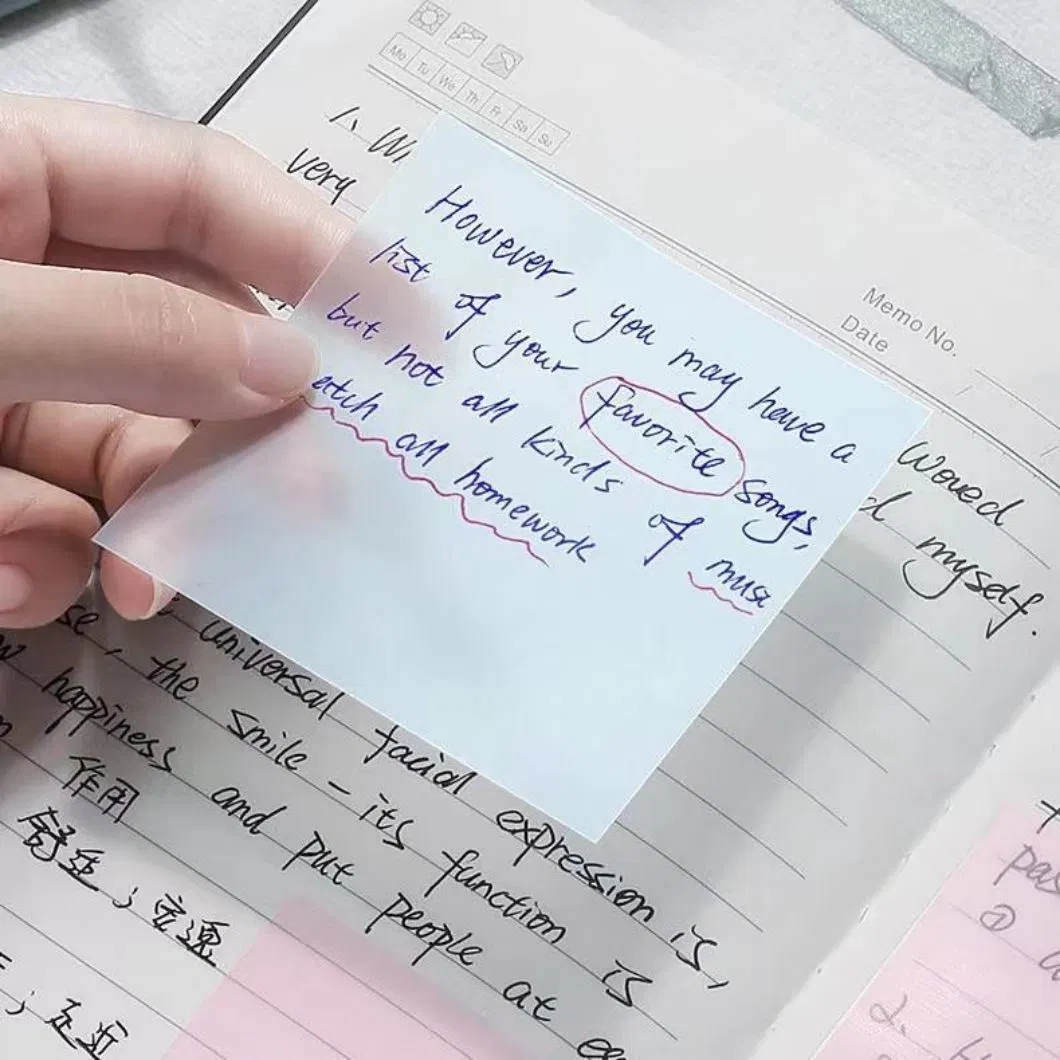 Mo Tu We Th Fr Sa Su
Memo No.
Date
very
However, you may have a
list of your favorite songs,
but not all kinds of musi
atch all homework
Woved
d myself.
universal facial expression is,
se, the smile - its function is
happiness and put people at
作用
舒适;
2.